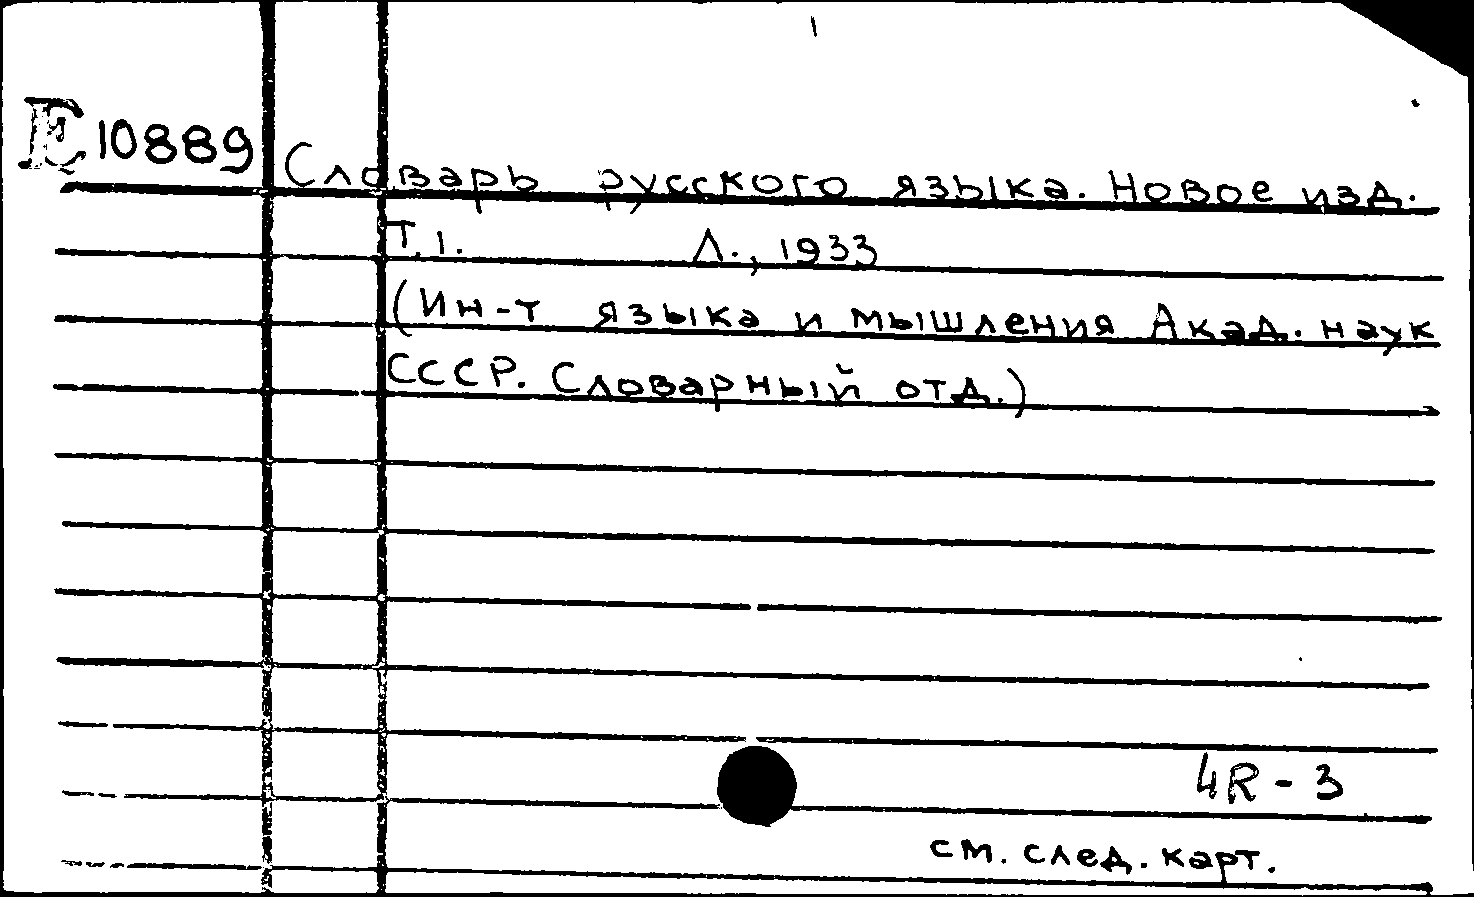 E 10889 Словарь русского языка. Новое изд.
Т.1. Л., 1933
(Ин-т языка и мышления Акад. наук
СССР. Словарный отд.)
4R-3
см. след. карт.